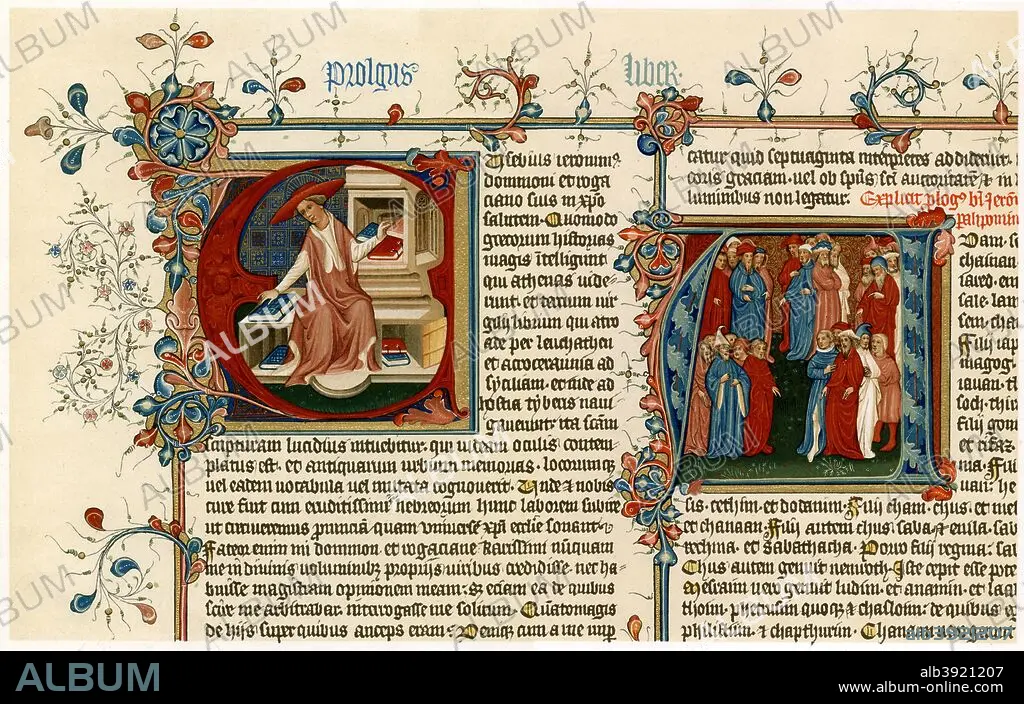 Prolgus
liber
usebius ieronim⁹
domnioni et roga
ciano suis in xpo
salutem. Quomodo
grecorum historias
magis intelligunt
qui athenas uide
runt. et tercium uir
gilii librum qui a troa
de per leuchaten
et acroceraunia ad
syciliam. et inde ad
hostia tyberis naui
gauerit. ita scam
scripturam lucidius intuebitur. qui iudeam oculis contem
platus est. et antiquarum urbium memorias. locorumque
uel eadem uocabula uel mutata cognouerit. Unde et nobis
cure fuit cum eruditissimis hebreorum hunc laborem subire
ut circuiremus prouinciam quam uniuerse xpi ecclesie sonant.
Fateor enim mi domnion et rogaciane karissimi nunquam
me in diuinis uoluminibus propriis uiribus credidisse. nec ha
buisse magistram opinionem meam. Sed etiam ea de quibus
scire me arbitrabar interrogasse me solitum. Quantomagis
de hijs super quibus anceps eram. Denique cum a me
catur quid septuaginta interpretes addiderint.
coris graciam. uel ob spūs sci auctoritatem
luminibus non legatur. Explicit plog⁹ bi Jerōn
palipomin
Dam. se
chainan.
iared. en
sale. lam
sem. cha
Filij iap
magog.
iauan. th
soch. thir
filij gom
et rifaz.
ma. Filij
uan. he
sis. cethim et dodanim. Filij cham. chus. et mes
et chanaan. Filij autem chus. saba. et euila. sab
rechma. et sabathacha. Porro filij regma. sab
Chus autem genuit nemroth. Iste cepit esse pote
Mesraim uero genuit ludim. et anamin. et laa
thoim. phetrusim quoque et chasloim. de quibus e
philistiim. et chapthurim. Chanaan
ALBUM
alb3921207
www.album-online.com